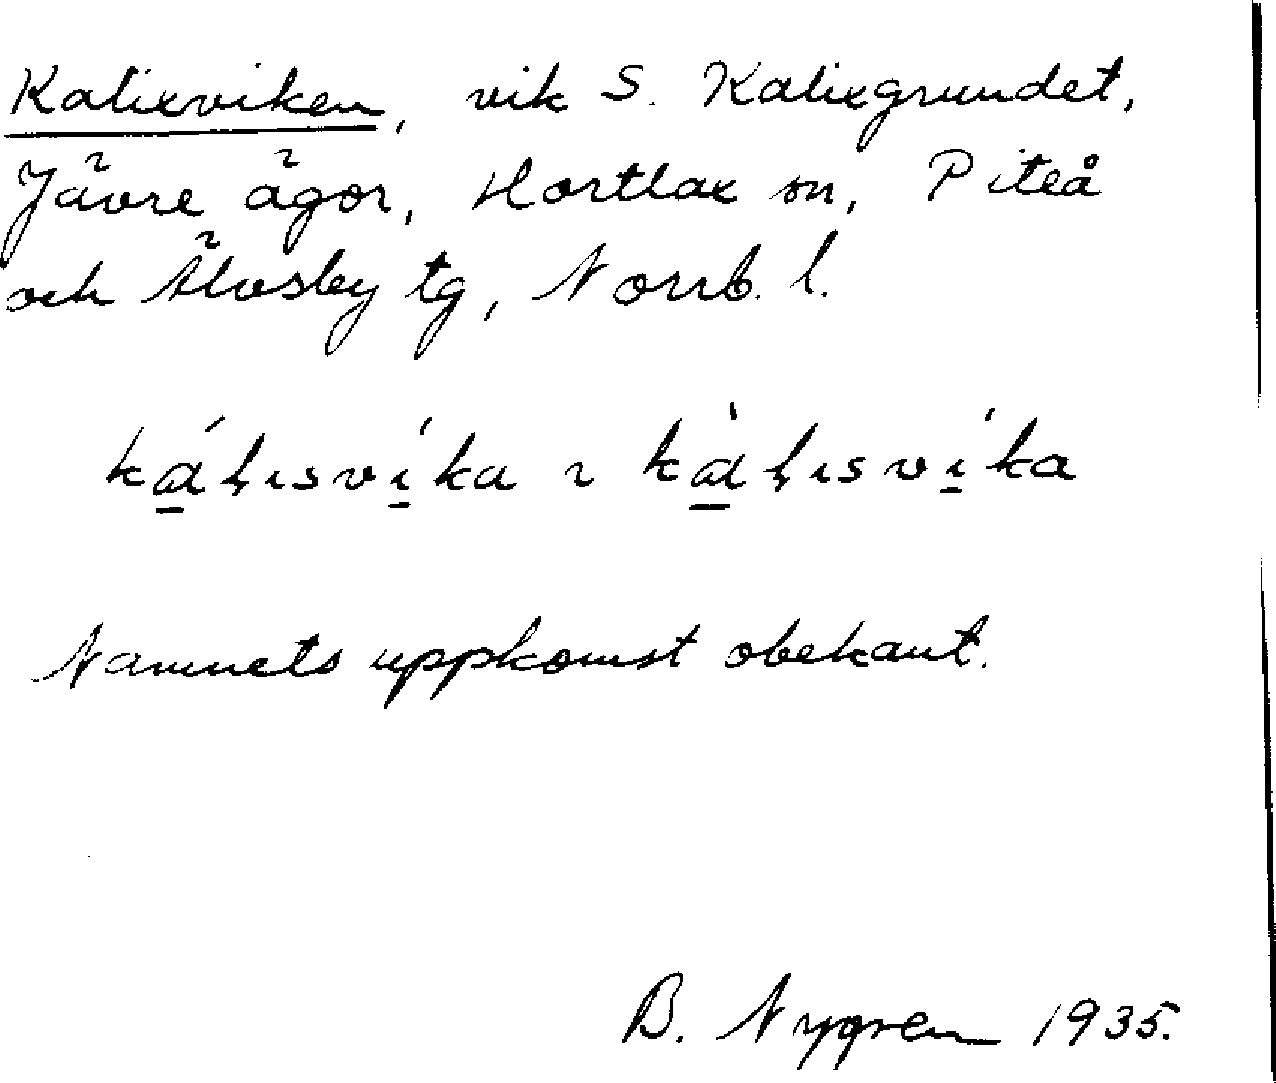 Kalixviken, vik S. Kalixgrundet,
Jävre ägor, Hortlax sn, Piteå
och Älvsby tg, Norrb. l.
ká̱ḷɩsví̱ka ~ kà̱ḷɩsví̱ka
Namnets uppkomst obekant.
B. Nygren 1935.